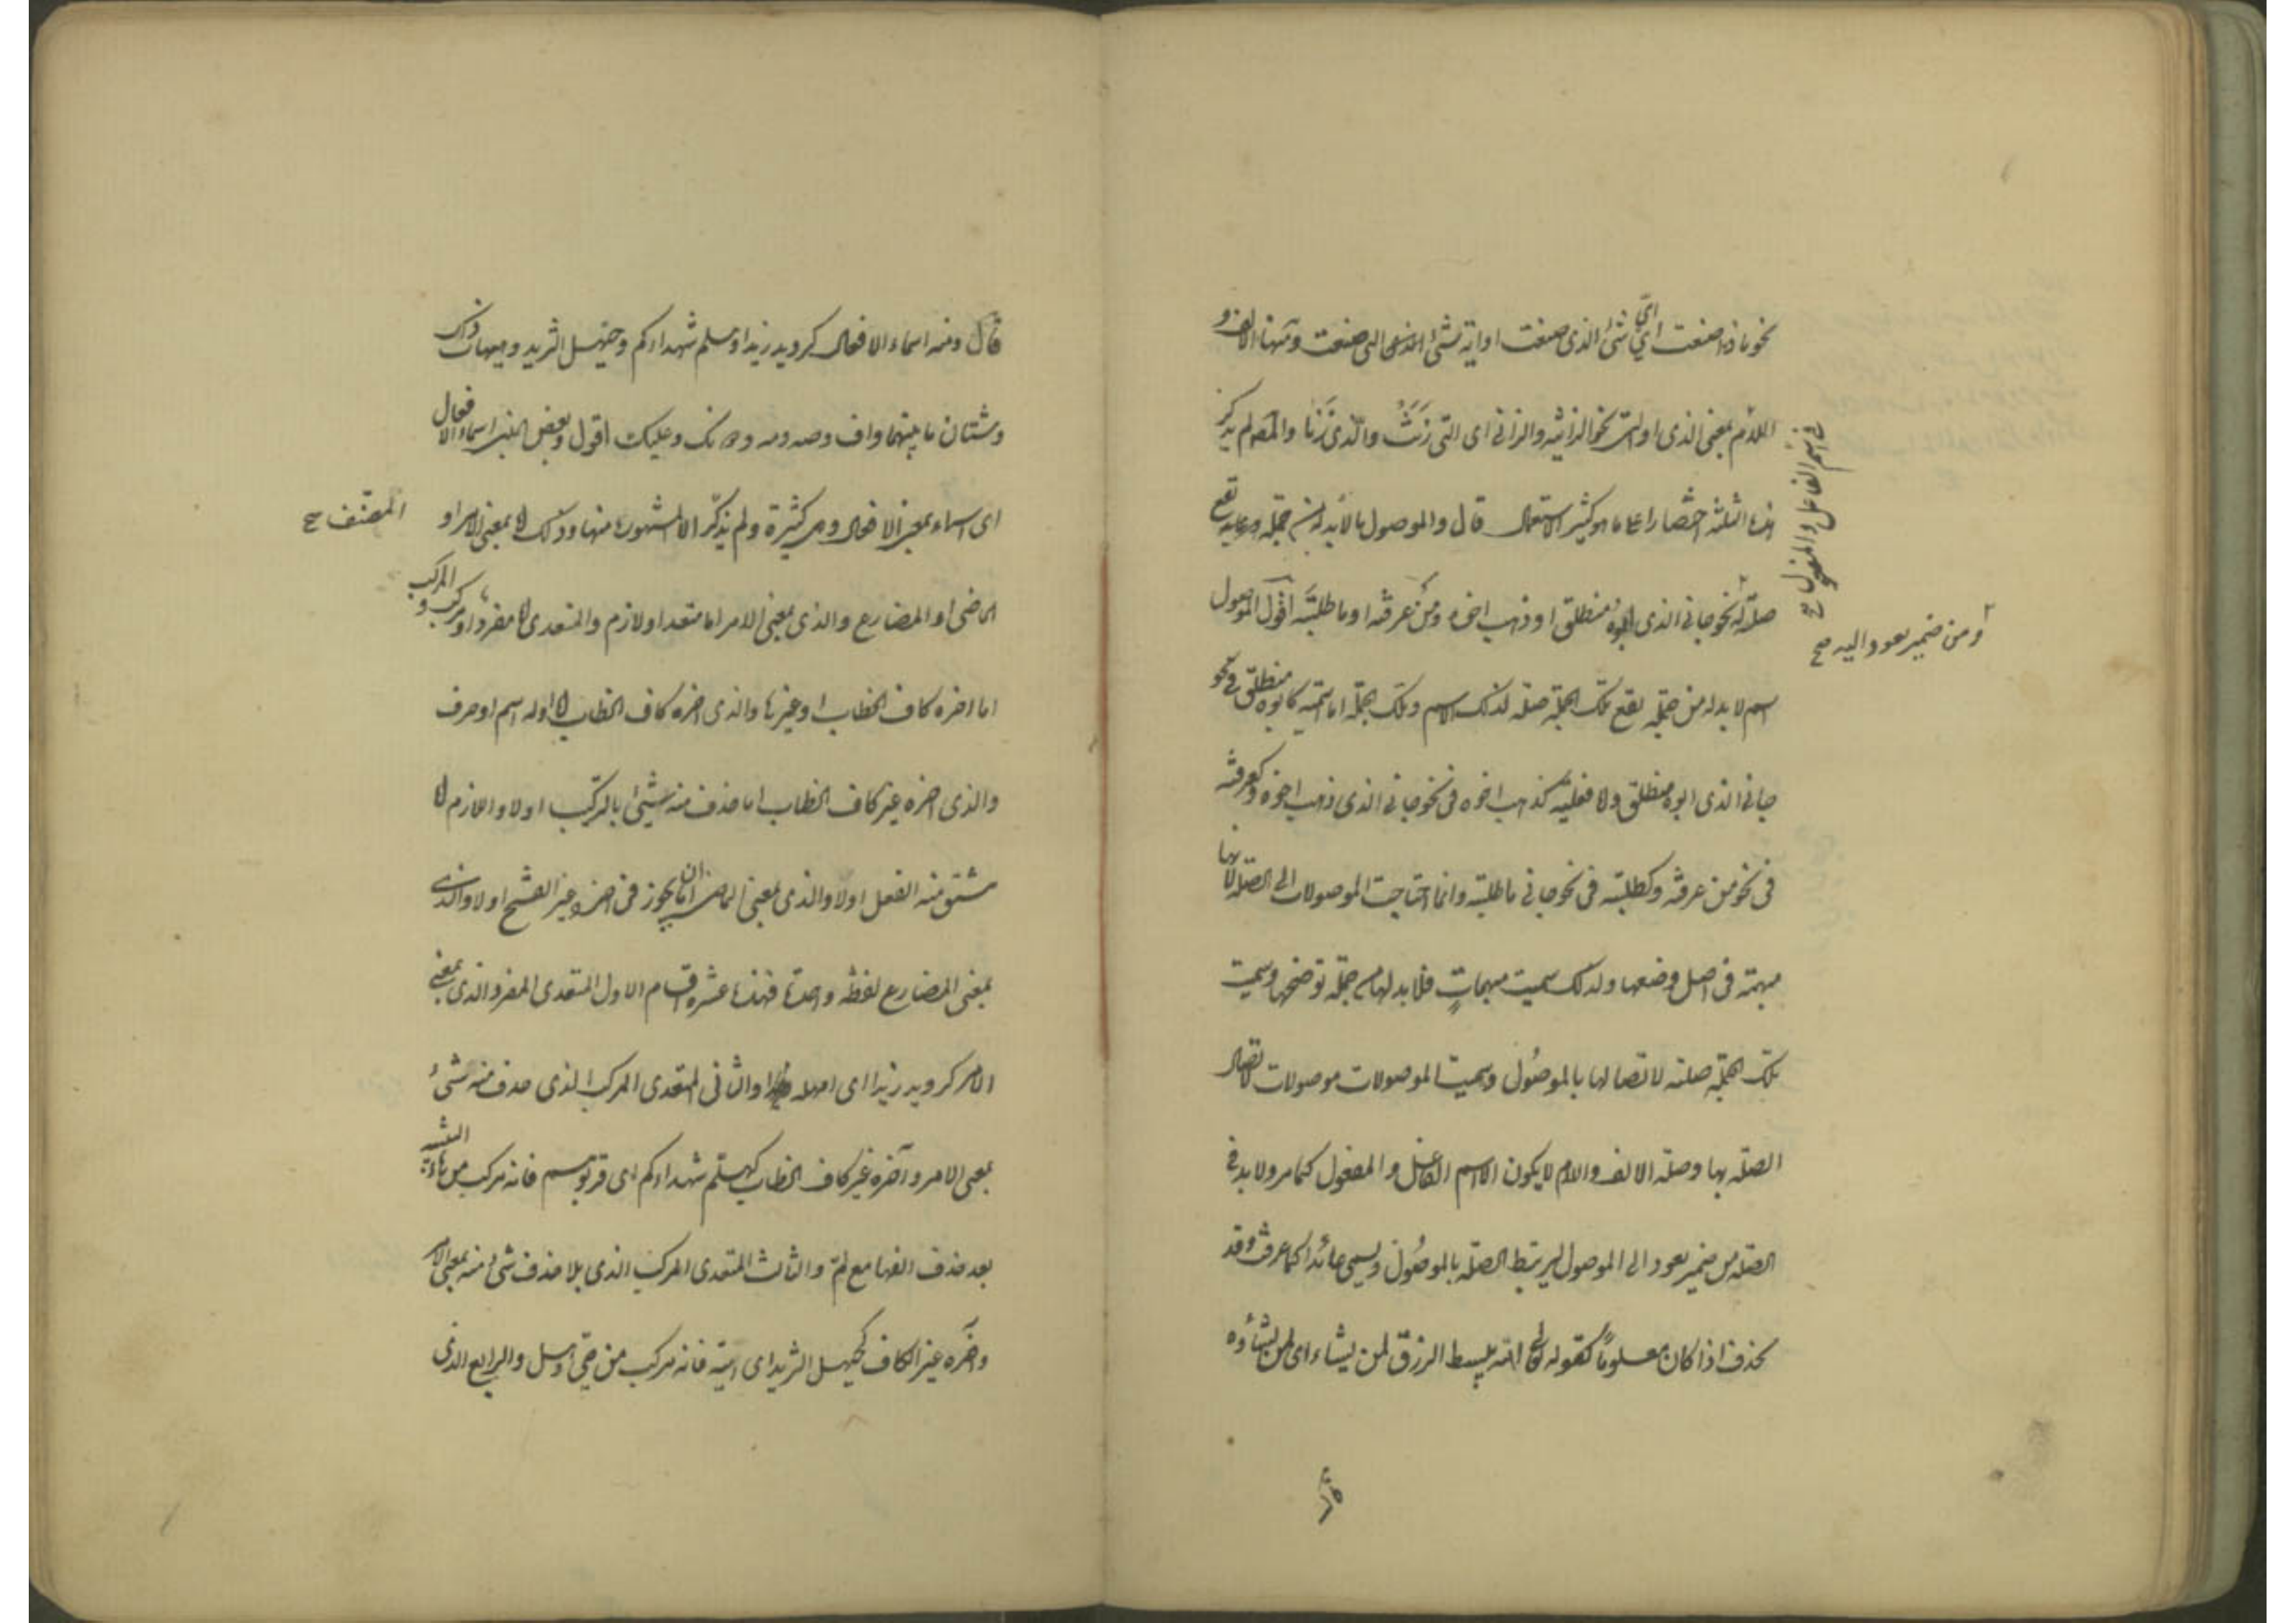 نحو ماذا صنعت اى اىّ شئ الذى صنعت او اية شئ التى صنعت ومنها الالف و
اللام بمعنى الذى او التى نحو الزانية والزانى اى التى زَنَتْ والّذى زَنَا والمص لم يذكر
هذه الثلثة اختصارا على ما هو كثير الاستعمال قال والموصول ما لا بد له من جملة تقع
فى اسم الفاعل والمفعول صح
صلة له نحو جانى الذى ابوه منطلق او ذهب اخوه ومن عرفته او ما طلبته اقول الموصول
ومن ضمير يعود اليه صح
اسم لا بد له من جملة تقع تلك الجملة صلة لذلك الاسم وتلك الجملة اما اسمية كابوه منطلق فى نحو
جانى الذى ابوه منطلق ولا فعلية كذهب اخوه فى نحو جانى الذى ذهب اخوه وكعرفته
فى نحو من عرفته وكطلبته فى نحو جانى ما طلبته وانما احتاجت الموصولات الى الصلة لانها
مبهمة فى اصل وضعها ولذلك سميت مبهمات فلا بد لها من جملة توضحها وسميت
تلك الجملة صلة لاتصالها بالموصول وسميت الموصولات موصولات لاتصال
الصلة بها وصلة الالف والام لا يكون الا اسم الفاعل والمفعول كما مر ولا بد فى
الصلة من ضمير يعود الى الموصول ليرتبط الصلة بالموصول ويسمى عائدا كما عرفت وقد
يحذف اذا كان معلوما كقوله تع الله يبسط الرزق لمن يشاء اى لمن يشاؤه
قال ومنه اسماء الافعال كرويد زيدا وهلم شهداءكم وحيهل الثريد وهيهات ذاك
وشتان ما بينهما واف وصه ومه ودونك وعليك اقول وبعض المبنى اسماء الافعال
اى اسماء بمعنى الافعال وهى كثيرة ولم يذكر الا المشهورة منها وذلك اما بمعنى الامر او
المصنف صح
الماضى او المضارع والذى بمعنى الامر اما متعد او لازم والمتعدى اما مفرد او مركب والمركب
اما اخره كاف الخطاب او غيرها والذى اخره كاف الخطاب اما اوله اسم او حرف
والذى اخره غير كاف الخطاب اما حذف منه شيئ بالتركيب اولا واللازم اما
مشتق منه الفعل اولا والذى بمعنى الماضى اما ان يجوز فى اخره غير الفتح اولا والذى
بمعنى المضارع لفظة واحدة فهذه عشرة اقسام الاول المتعدى المفرد الذى بمعنى
الامر كرويد زيدا اى امهله والثانى المتعدى المركب الذى حذف منه شئ
بمعنى الامر وآخره غير كاف الخطاب كهلم شهداءكم اى قربوهم فانه مركب من هاء التنبيه
بعد حذف الفها مع لمّ والثالث المتعدى المركب الذى بلا حذف شئ منه بمعنى الامر
وآخره غير الكاف كحيهل الثريد اى ايته فانه مركب من حىّ وهل والرابع الذى